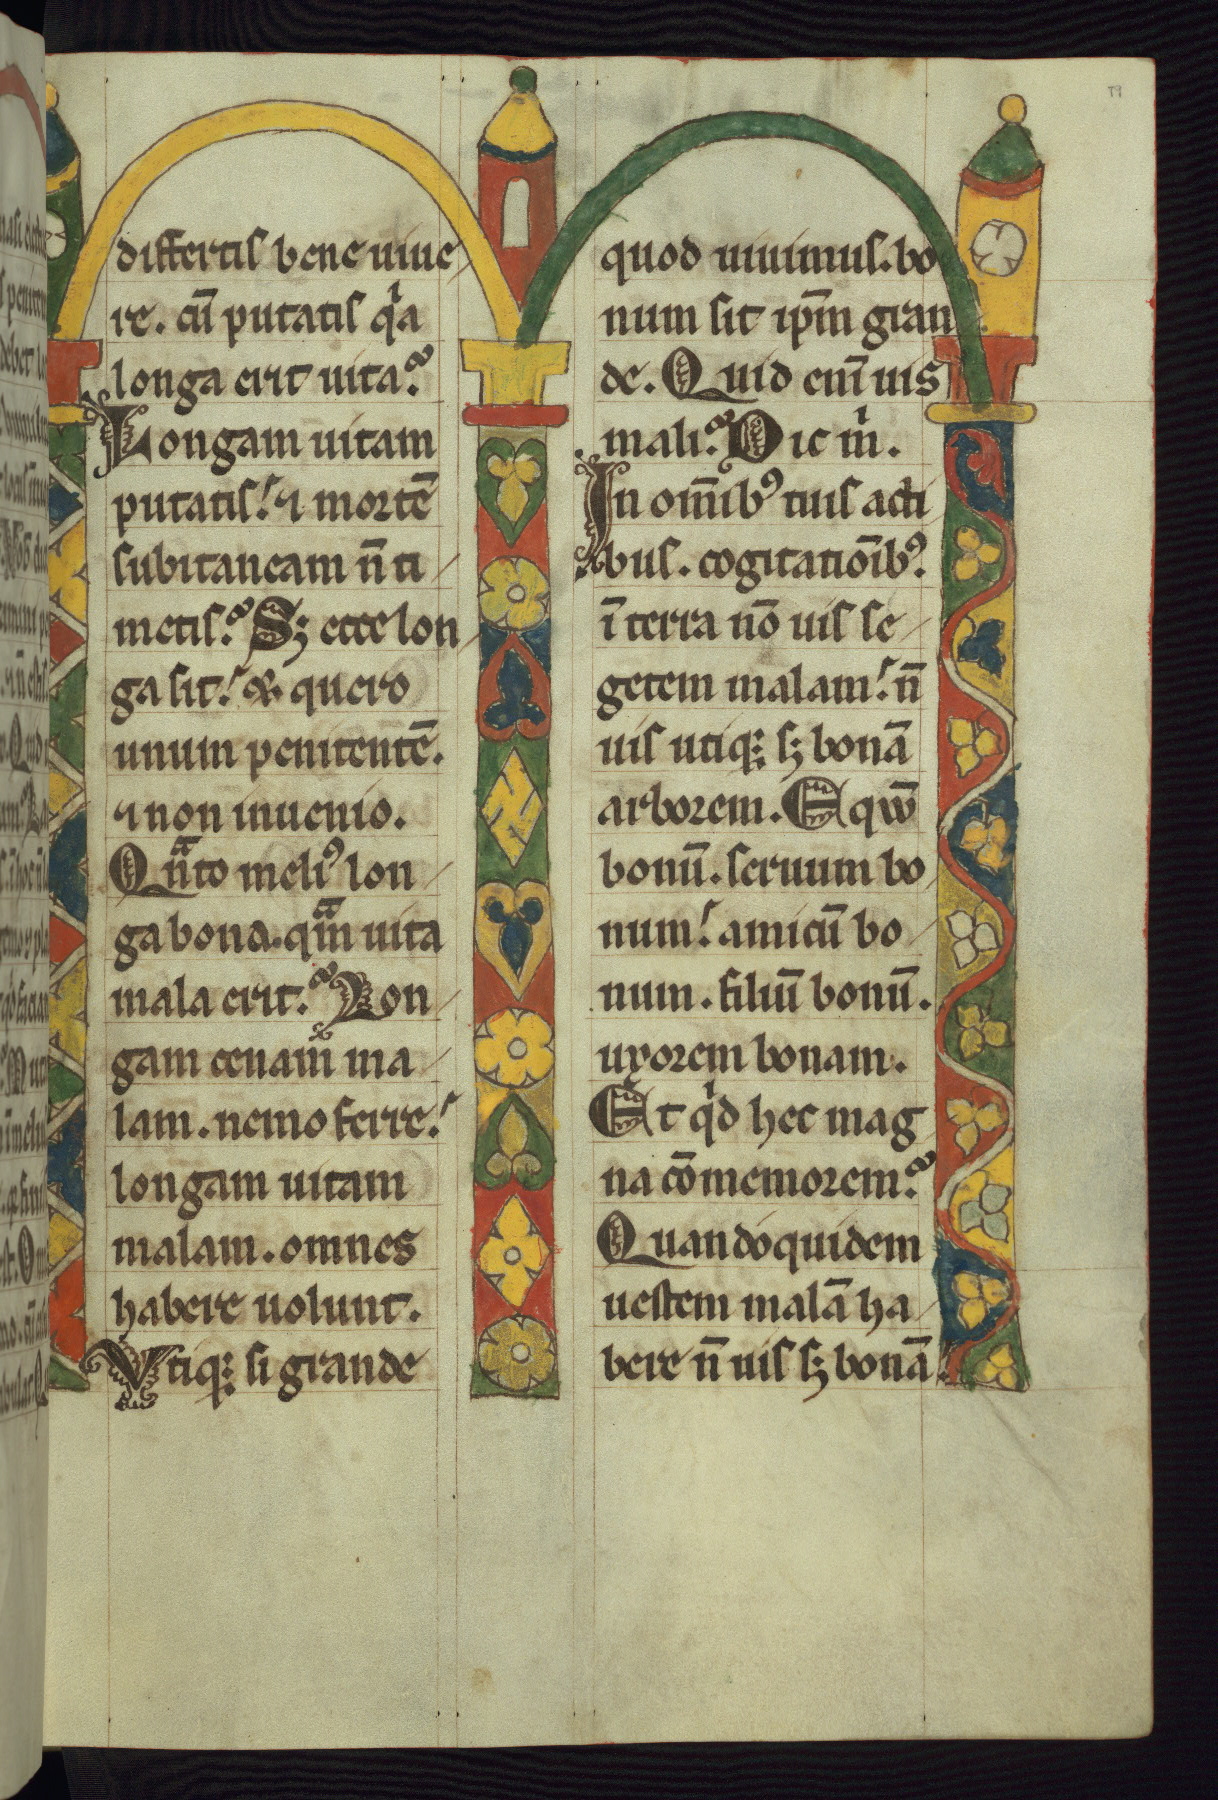 differtis bene uiue
re. cu̅ putatis qͥa
longa erit uita?
Longam uitam
putatis! ⁊ morte̅
subitaneam n̅ ti
metis? Sꝫ ecce lon
ga sit! & quero
unum penitente̅.
⁊ non inuenio.
Qn̅to meliꝰ lon
ga bona. qm̅ uita
mala erit? Lon
gam cenam ma
lam. nemo ferre!
longam uitam
malam. omnes
habere uolunt.
Vtiqꝫ si grande
quod uiuimus. bo
num sit ip̅m gran
de. Quid eni̅ uis
mali? Dic mͥ.
In om̅ibꝰ tuis acti
bus. cogitatio̅ibꝰ.
i̅ terra no̅ uis se
getem malam! n̅
uis utiqꝫ sꝫ bona̅
arborem. Eqw̅
bonu̅. seruum bo
num! amicu̅ bo
num. filiu̅ bonu̅.
uxorem bonam.
Et qͥd hec mag
na co̅memorem?
Quandoquidem
uestem mala̅ ha
bere n̅ uis sꝫ bona̅.